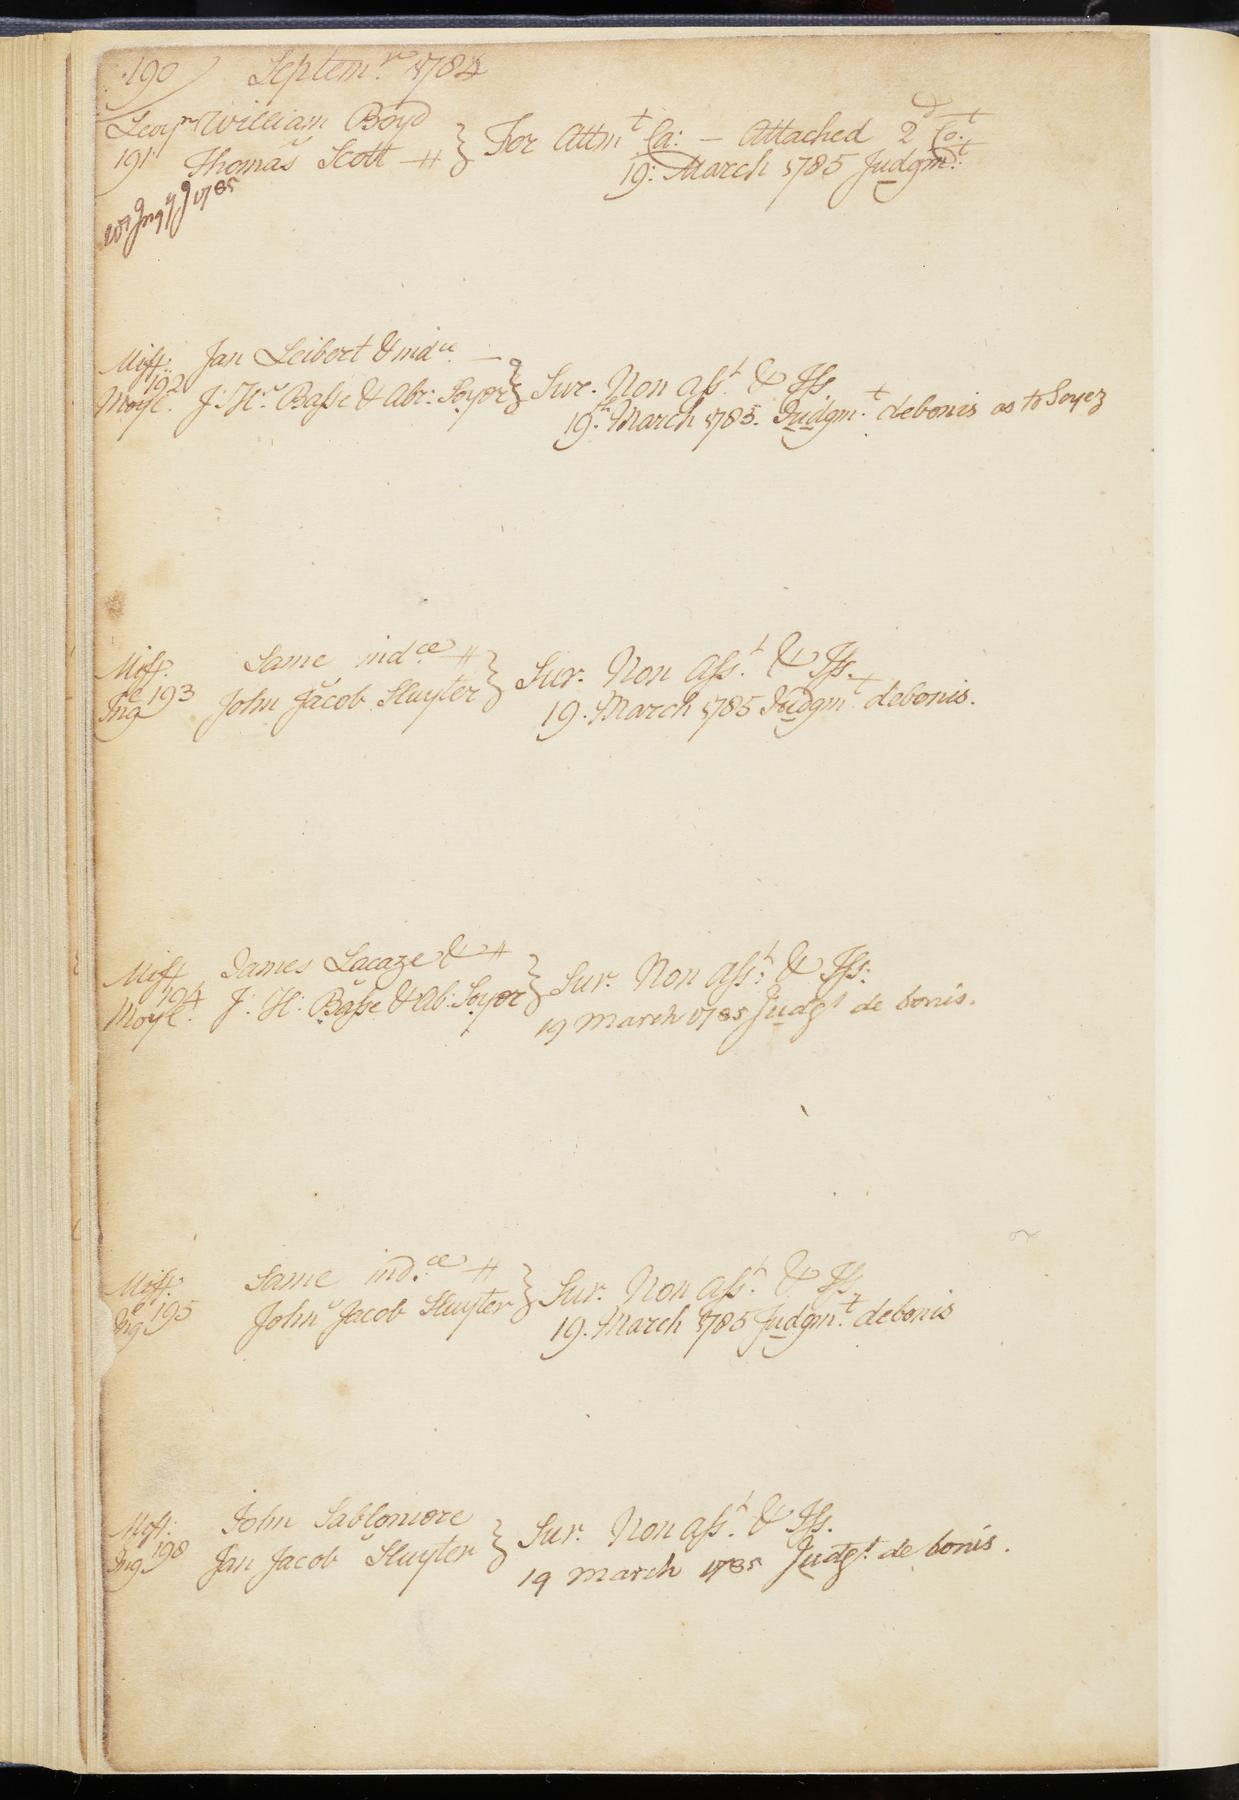 190 Septem.r 1784
Levy William Boyd
191 Thomas Scott } For Attm.t Ca: — Attached 2.d Co.t
19: March 1785 Judgm.t
1785
Miff: Jan Leibert & indce —
192
Moyl. J: H: Basse & Abr: Soyez } Sur. Non Ass.t & Iss.
19.th March 1785. Judgm.t debonis as to Soyez
Miff. Same ind.ce
Ing 193 John Jacob Sluyter } Sur. Non Ass.t & Iss.
19. March 1785 Judgm.t debonis.
Miff James Lacaze &
194
Moyl. J: H: Basse & Ab: Soyez } Sur. Non Ass.t & Iss:
19 March 1785 Judg.t de bonis.
Miff. Same ind.ce
Ing 195 John Jacob Sluyter } Sur. Non Ass.t & Iss.
19. March 1785 Judgm.t debonis
Miff: John Sabloniore
Ing 198 Jan Jacob Sluyter } Sur. Non Ass.t & Iss.
19 March 1785 Judg.t de bonis.